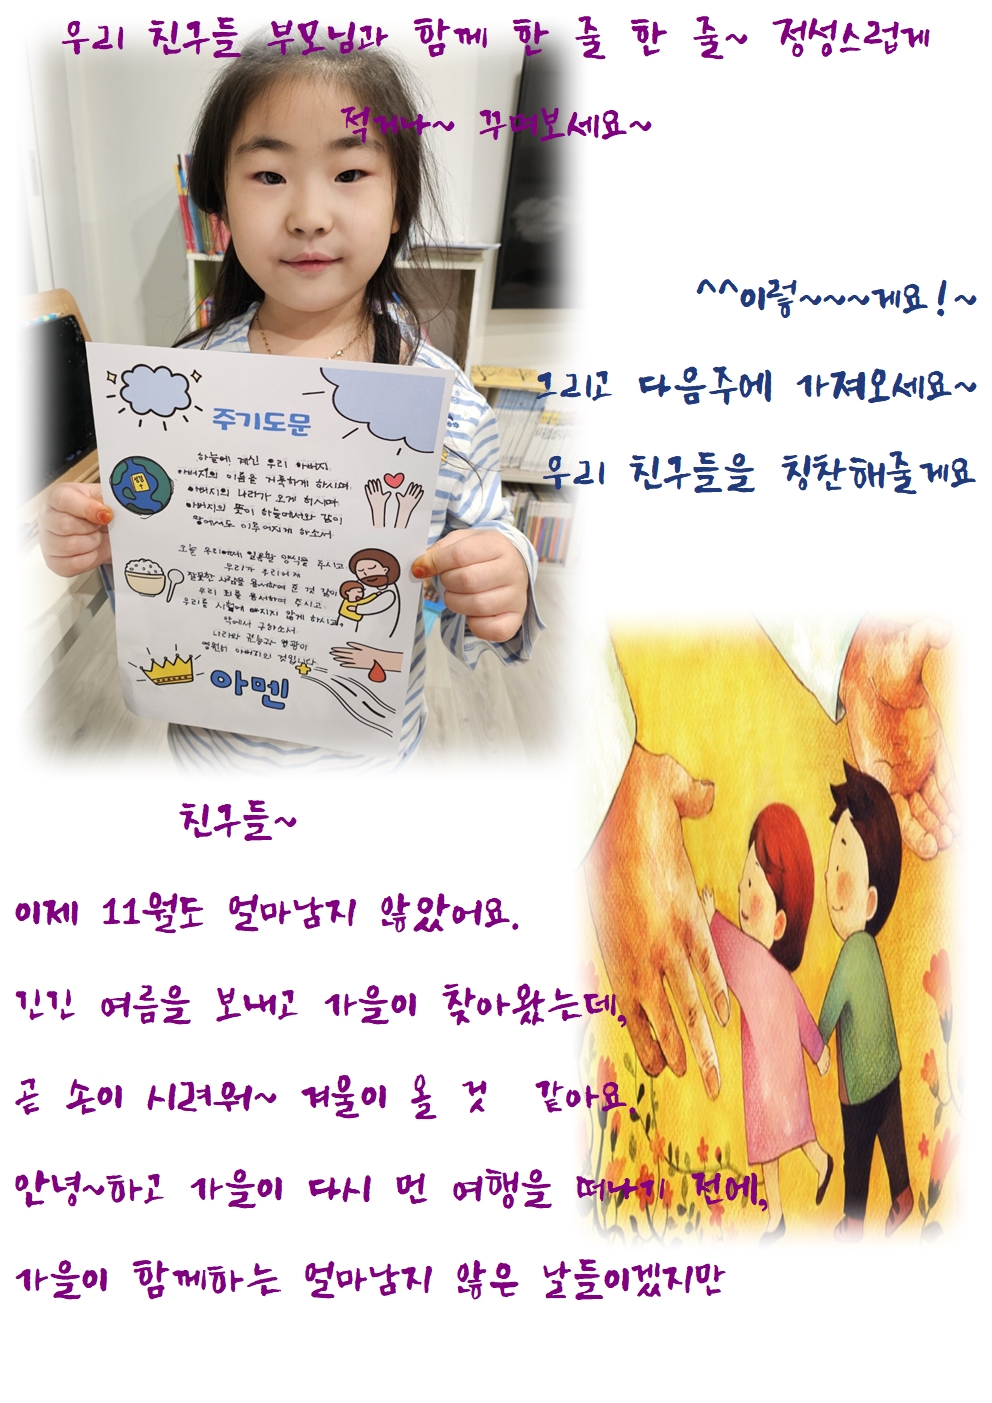 우리 친구들 부모님과 함께 한 줄 한 줄~ 정성스럽게
적거나~ 꾸며보세요~
^^이렇~~~게요!~
그리고 다음주에 가져오세요~
우리 친구들을 칭찬해줄게요
주기도문
하늘에 계신 우리 아버지,
아버지의 이름을 거룩하게 하시며
아버지의 나라가 오게 하시며
아버지의 뜻이 하늘에서와 같이
땅에서도 이루어지게 하소서
오늘 우리에게 일용할 양식을 주시고
우리가 우리에게
잘못한 사람을 용서하여 준 것 같이
우리 죄를 용서하여 주시고
우리를 시험에 빠지지 않게 하시고,
악에서 구하소서
나라와 권능과 영광이
영원히 아버지의 것입니다
아멘
친구들~
이제 11월도 얼마남지 않았어요.
긴긴 여름을 보내고 가을이 찾아왔는데,
곧 손이 시려워~ 겨울이 올 것 같아요.
안녕~하고 가을이 다시 먼 여행을 떠나기 전에,
가을이 함께하는 얼마남지 않은 날들이겠지만